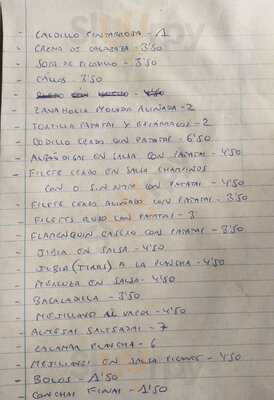 - CALDILLO PINTARROJA - 1
- CREMA DE CALABAZA - 3'50
- SOPA DE PICADILLO - 3'50
- CALLOS - 3'50
- ZANAHORIA MORADA ALIÑADA - 2
- TORTILLA PATATAS Y ESPARRAGOS - 2
- CODILLO CERDO CON PATATAS - 6'50
- ALBONDIGAS EN SALSA CON PATATAS - 4'50
- FILETE CERDO EN SALSA CHAMPIÑONES
CON O SIN CON PATATAS - 4'50
- FILETE CERDO ALIÑADO CON PATATAS - 3'50
- FILETES CON PATATAS - 3
- FLAMENQUIN CASERO CON PATATAS - 3'50
- JIBIA EN SALSA - 4'50
- JIBIA (TIRAS) A LA PLANCHA - 4'50
- MERLUZA EN SALSA - 4'50
- BACALADILLA - 3'50
- MEJILLONES AL VAPOR - 4'50
- ALMEJAS SALTEADAS - 7
- CALAMAR PLANCHA - 6
- MEJILLONES EN SALSA PICANTE - 4'50
- BOLOS - 1'50
- CONCHAS FINAS - 1'50